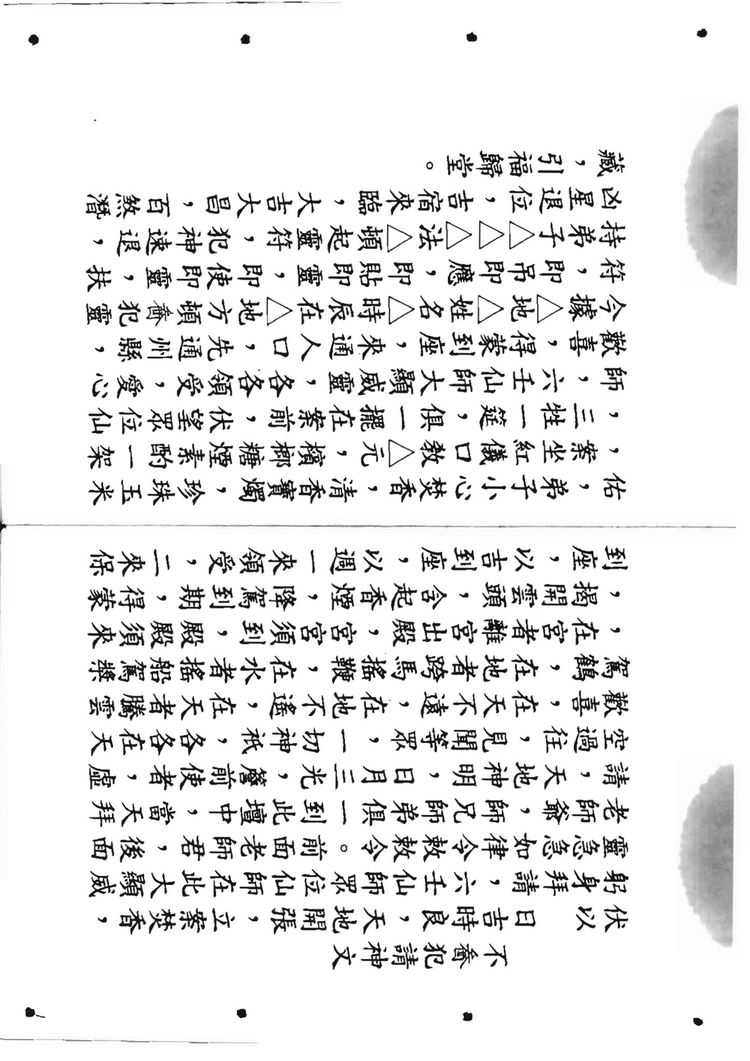 不喬犯請神文
伏以　日吉時良，天地開張，立案焚香，
躬身拜請，六壬仙師眾位在此大顯威
靈急急如律令敕令。前面老師君，後面
老師爺，師兄師弟俱一到此壇中，當天拜
請天地神明，日月三光，簷前使者，虛
空過往，見聞等眾，一切神祇，各各在天
歡喜，在天不遠，在地不遙，在天者騰雲
駕鶴，在地者跨馬搖鞭，在水者搖船駕槳
，在宮者離宮出殿，宮宮須到，殿殿須來
，揭開雲頭，含起香煙，降駕到期，得蒙
到座，以吉到座，以週一來領受，二來保
佑弟子小心焚香，清香寶燭，珍珠玉米
，案坐紅儀口教△元，檳榔糖煙素酌一架
，三牲一筵，俱一擺在案前，伏望眾位仙
師，六壬仙師大顯威靈，各各領受，愛心
歡喜，得蒙到座，來通人口，先通州縣，
今據△地△姓名△時辰在△地方頓喬犯靈
符，即弔即應，即貼即靈，即使即靈，扶
持弟子△△△法△頓起靈符，犯神速退，
凶星退位，吉宿來臨，大吉大昌，百煞潛
藏，引福歸堂。